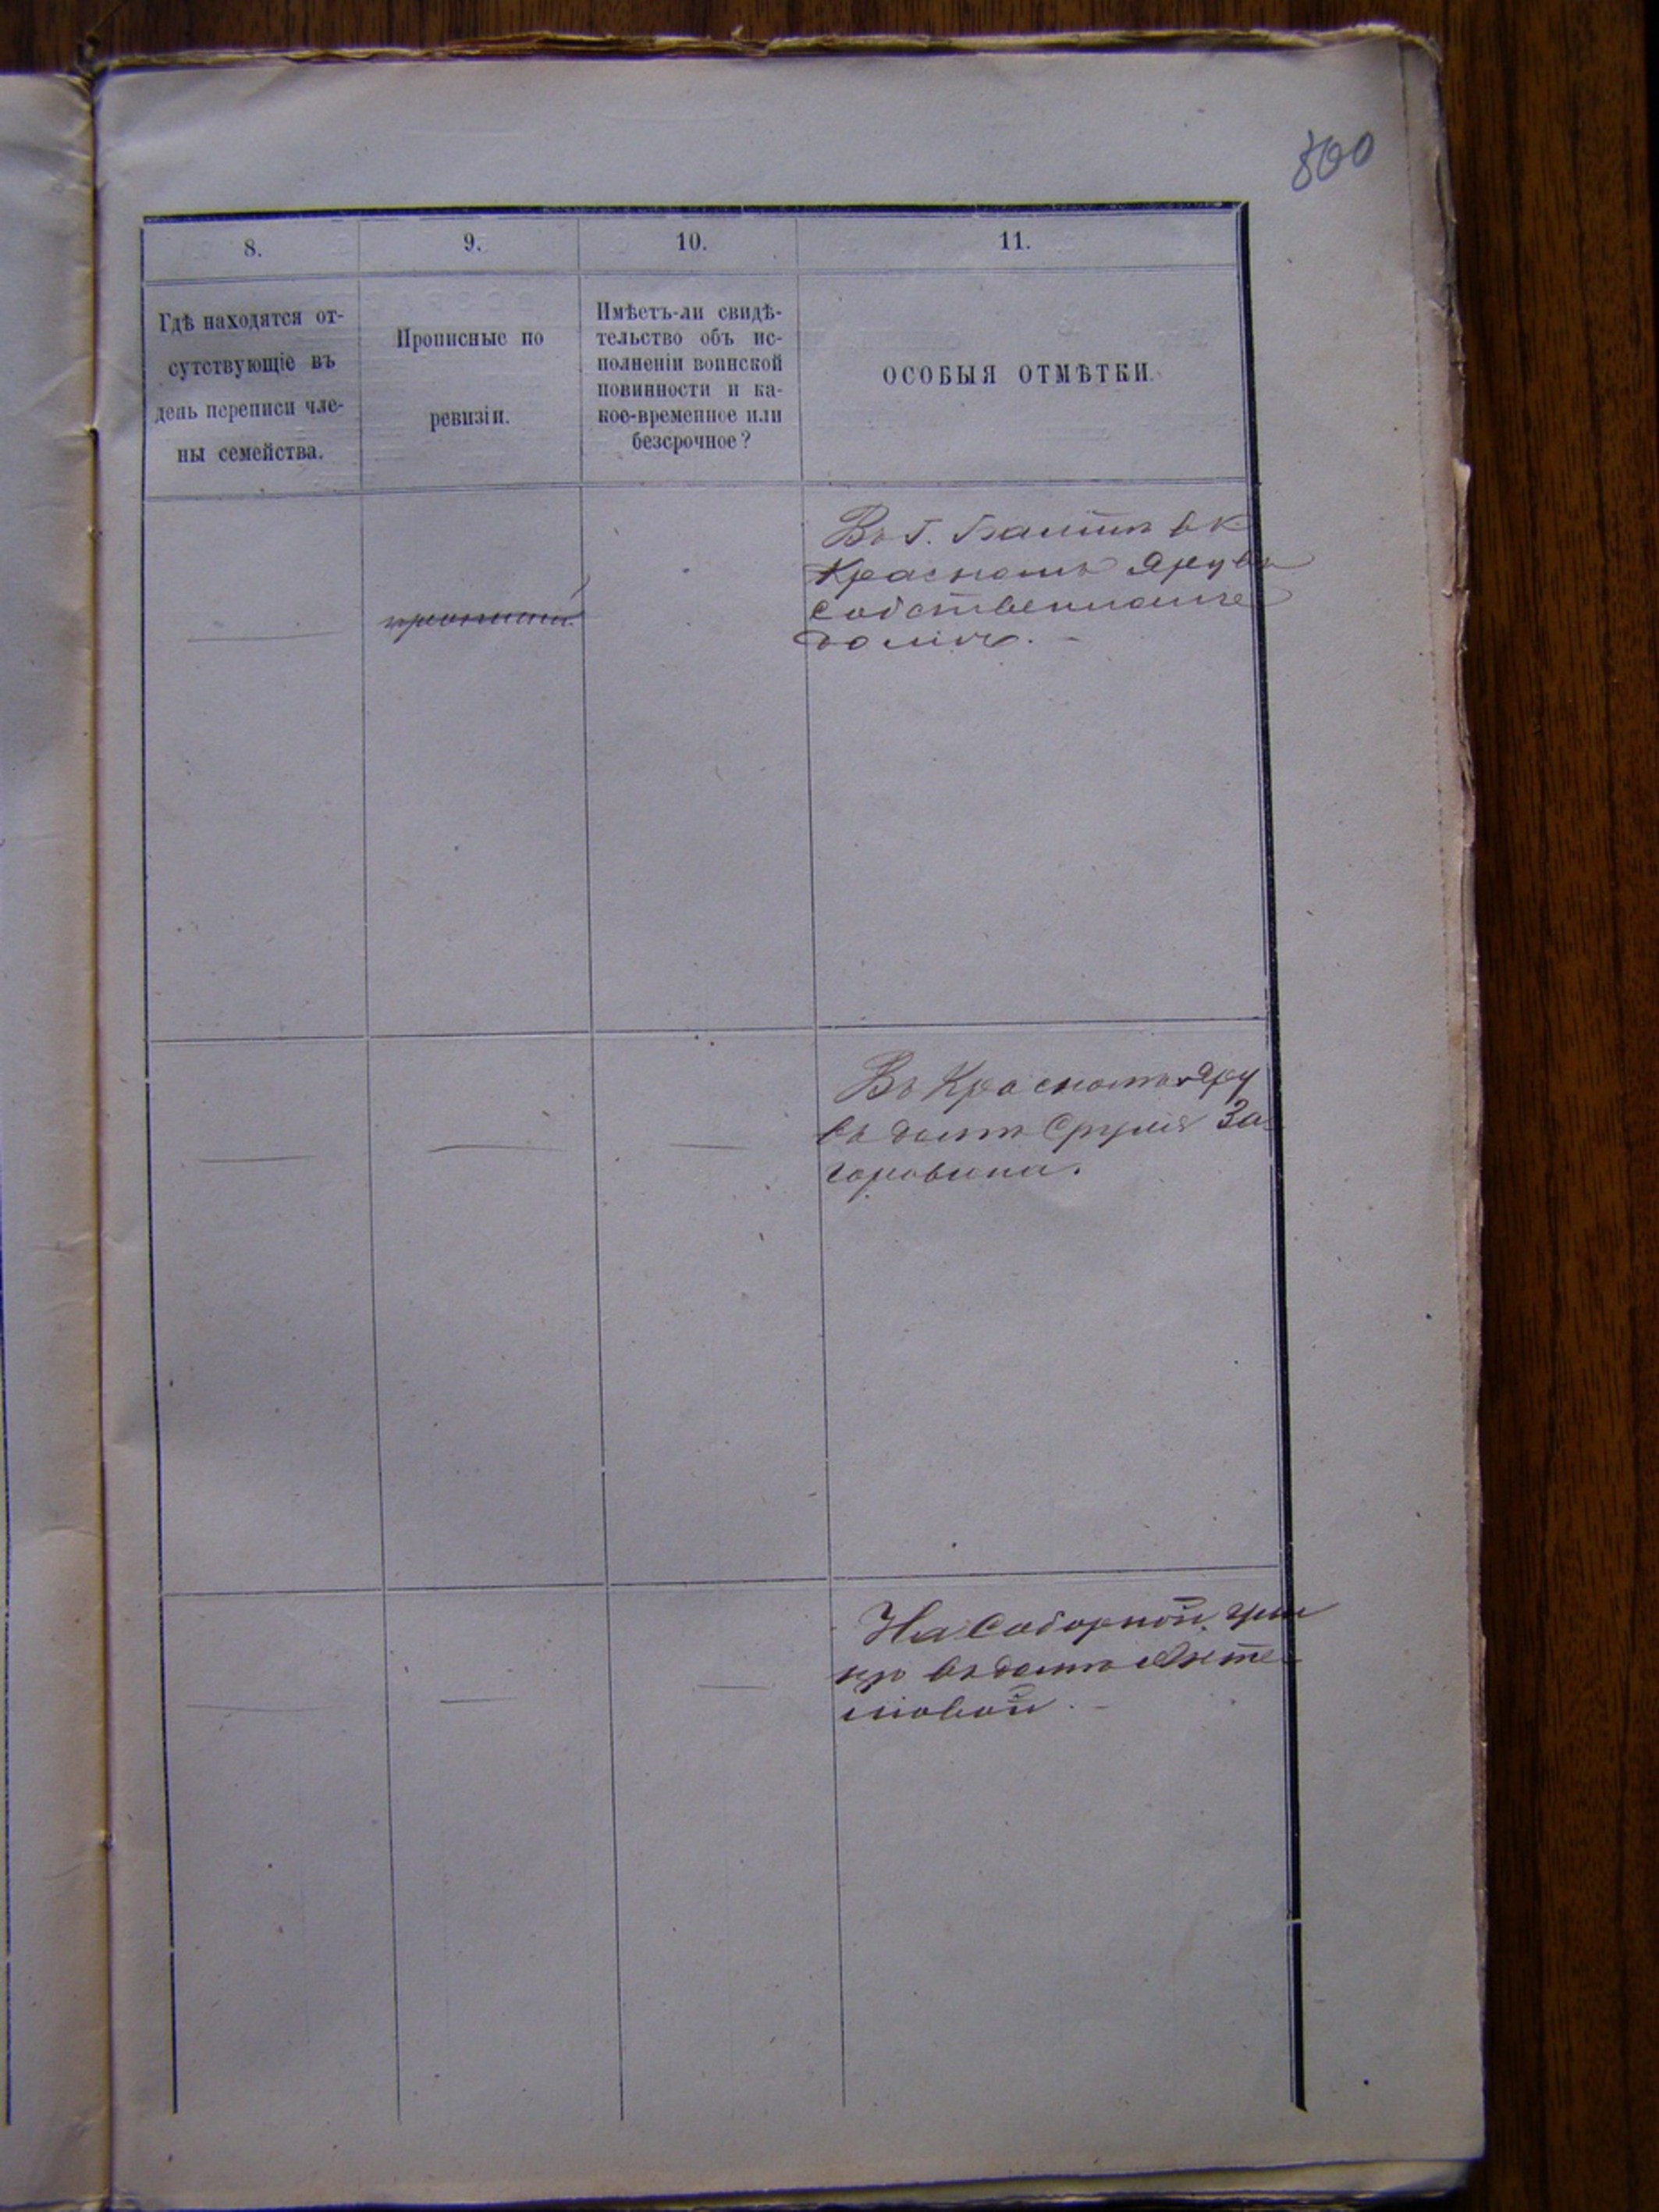 800
8.
9.
10.
11.
Гдѣ находятся от-
сутствующіе въ
день переписи чле-
ны семейства.
Прописные по
ревизіи.
Имѣетъ-ли свидѣ-
тельство объ ис-
полненіи воинской
повинности и ка-
кое-временное или
безсрочное?
ОСОБЫЯ ОТМѢТКИ.
Въ г. Балтѣ в к
Красномъ Яру въ
собственномъ
домѣ.
Въ Красномъ Яру
въ домѣ Сруля За-
горовина.
На Соборной ули
въ домѣ
мовой.